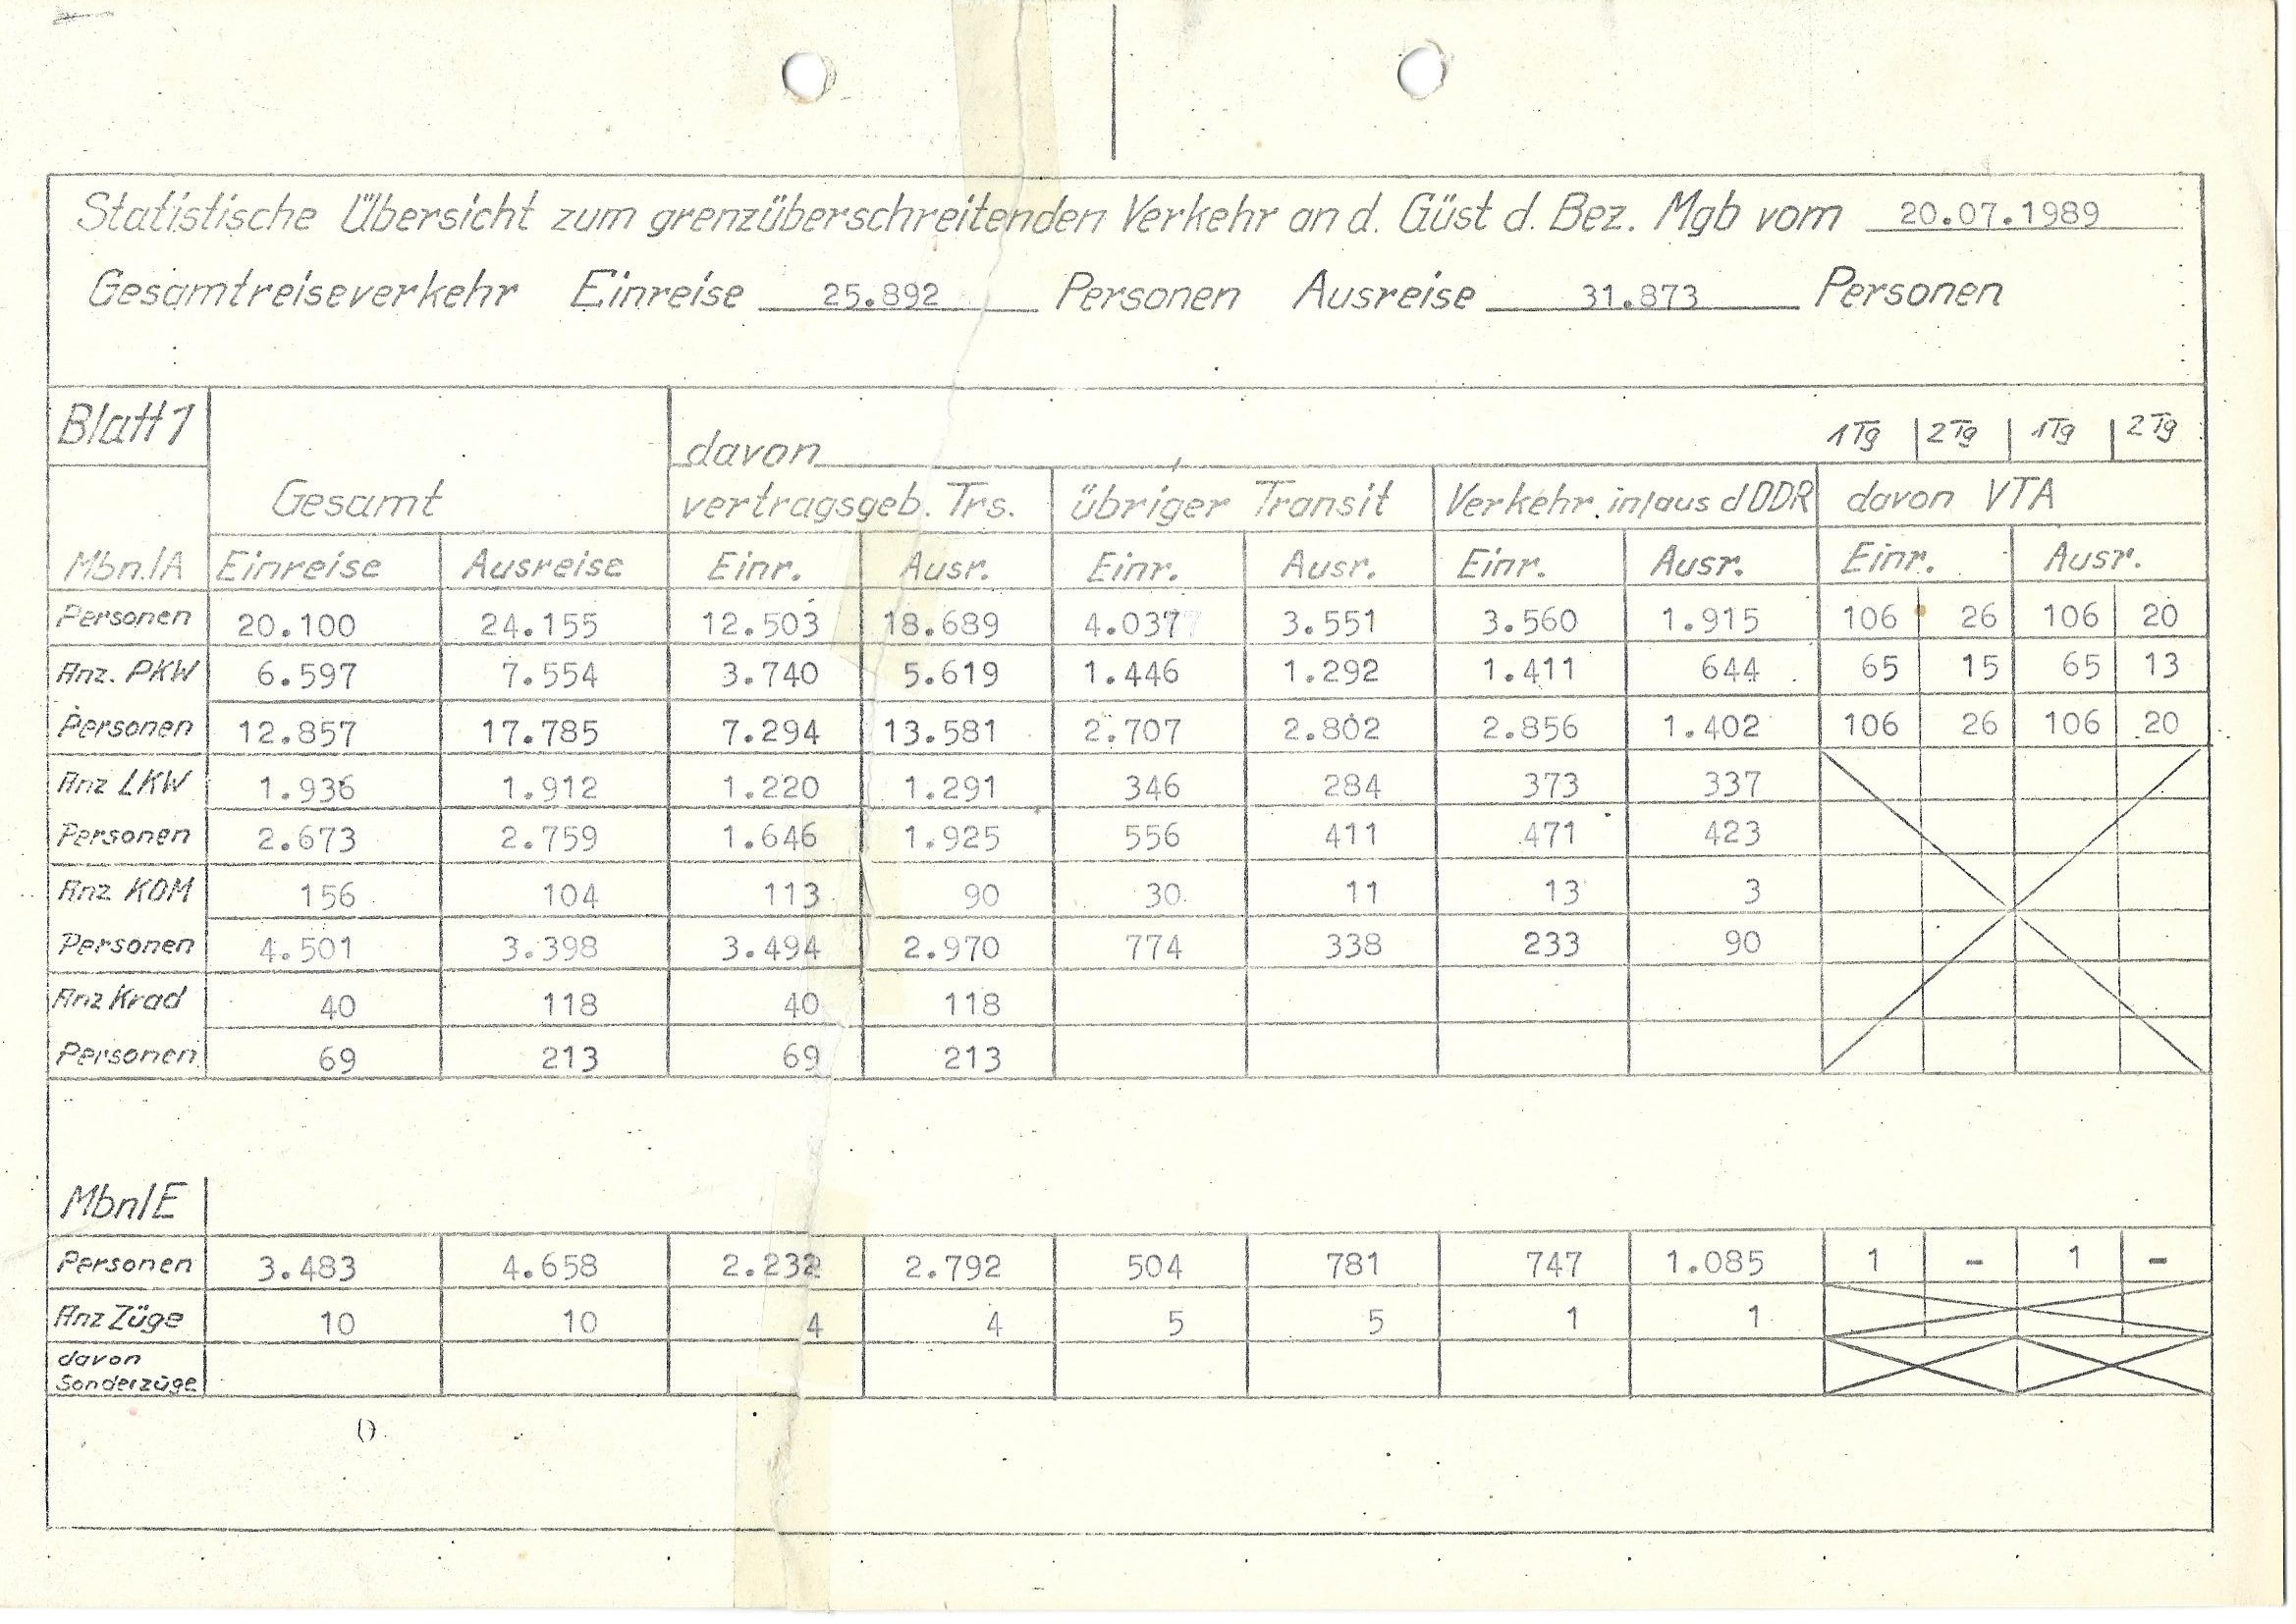 Statistische Übersicht zum grenzüberschreitenden Verkehr an d. Güst d. Bez. Mgb vom 20.07.1989
Gesamtreiseverkehr Einreise 25.892 Personen Ausreise 31.873 Personen
Blatt 1 davon 1 Tg 2 Tg 1 Tg 2 Tg
Gesamt vertragsgeb. Trs. übriger Transit Verkehr in/aus d DDR davon VTA
Mbn./A Einreise Ausreise Einr. Ausr. Einr. Ausr. Einr. Ausr. Einr. Ausr.
Personen 20.100 24.155 12.503 18.689 4.037 3.551 3.560 1.915 106 26 106 20
Anz. PKW 6.597 7.554 3.740 5.619 1.446 1.292 1.411 644 65 15 65 13
Personen 12.857 17.785 7.294 13.581 2.707 2.802 2.856 1.402 106 26 106 20
Anz LKW 1.936 1.912 1.220 1.291 346 284 373 337
Personen 2.673 2.759 1.646 1.925 556 411 471 423
Anz KOM 156 104 113 90 30 11 13 3
Personen 4.501 3.398 3.494 2.970 774 338 233 90
Anz Krad 40 118 40 118
Personen 69 213 69 213
Mbn/E
Personen 3.483 4.658 2.232 2.792 504 781 747 1.085 1 - 1 -
Anz Züge 10 10 4 4 5 5 1 1
davon
Sonderzüge